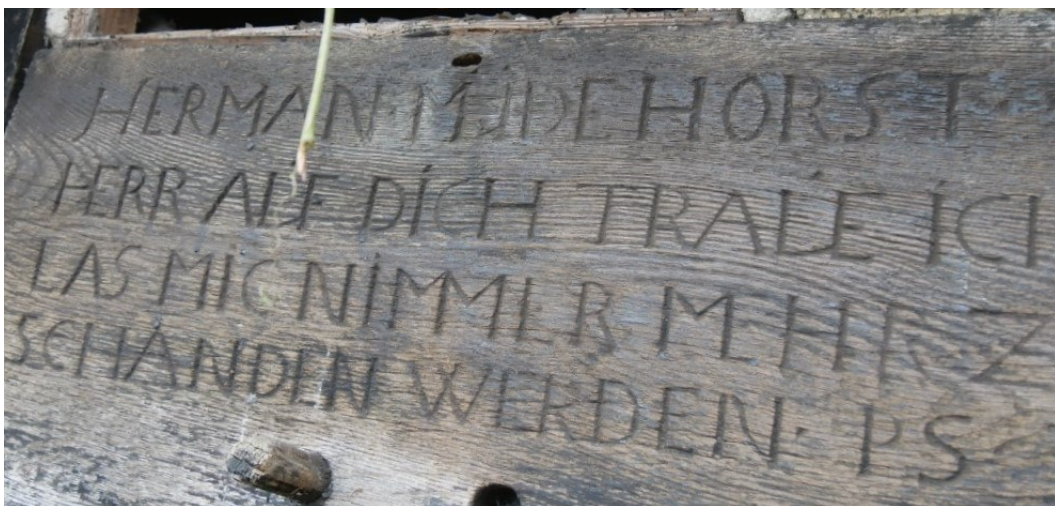 HERMAN· MIJDEHORST·
HERR AUF DICH TRAUE ICH
LAS MIC NIMMER MEHR Z
SCHANDEN WERDEN· PS